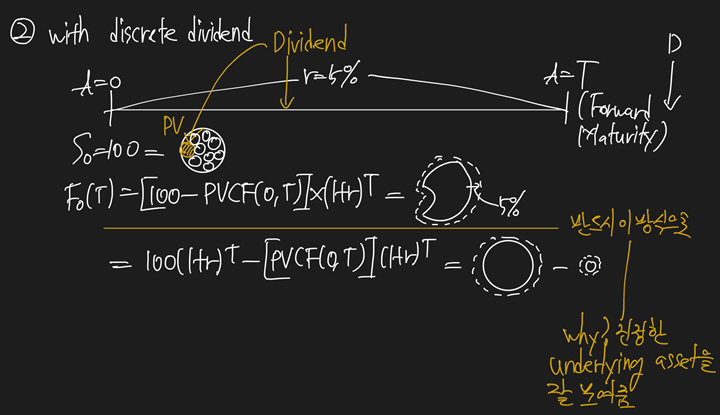 ② with discrete dividend
Dividend
D
t=0
r=5%
t=T
(Forward Maturity)
PV
S₀=100=
F₀(T)=[100-PVCF(0,T)]×(1+r)ᵀ=
5%
반드시 이 방식으로
= 100(1+r)ᵀ-[PVCF(0,T)](1+r)ᵀ=
-
why? 진정한
underlying asset을
잘 보여줌